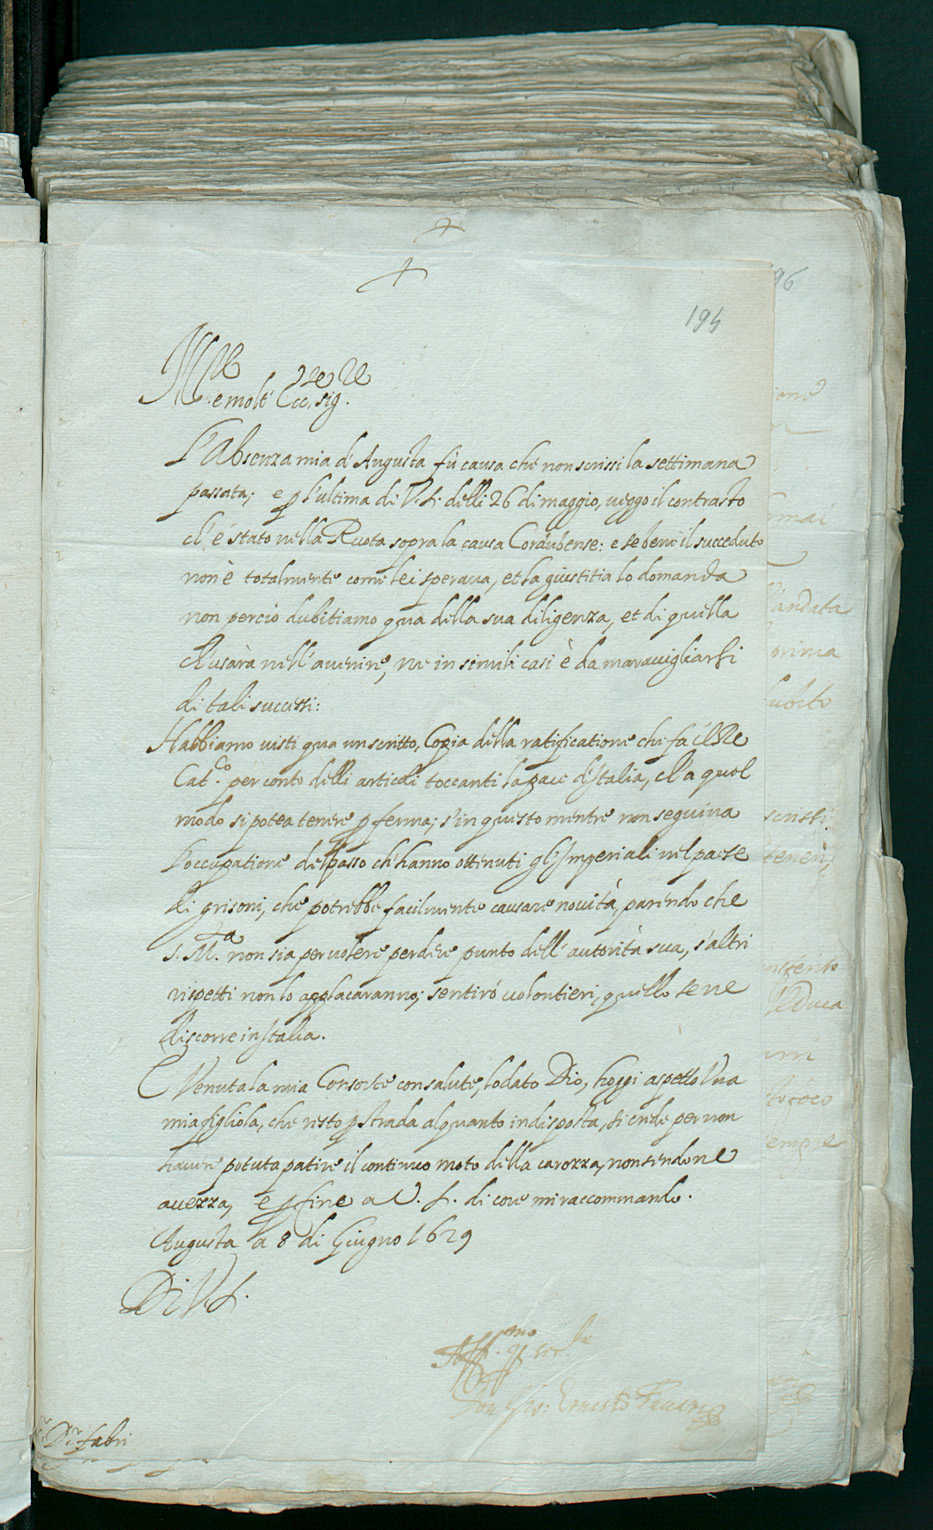 195
Mre. e molt' Ecc. sig.re
L'Absenza mia d'Augusta fù causa che non scrissi la settimana
passata; e p l'ultima di V.S. delli 26 di maggio, veggo il contrasto
ch'è stato nella Ruota sopra la causa Cordubense: e se bene il succeduto
non è totalmente come lei sperava, et la giustitia lo domanda
non perciò dubitiamo qua della sua diligenza, et di quella
ch'usarà nell'avenire, ne in simili casi è da maravigliarsi
di tali successi:
Habbiamo visti qua un scritto, Copia della ratificatione che fà il Re
Cat.co per conto delli articoli toccanti la pace d'Italia, ch'a quel
modo si potea tenere p ferma; s'in questo mentre non seguiva
l'occupatione del passo ch'hanno ottenuti gl'Imperiali nel paese
di grisoni, che potrebbe facilmente causare novità, parendo che
S. M.ta non sia per volere perdere punto dell'autorità sua, s'altri
rispetti non lo applacaranno; sentirò volontieri, quello se ne
discorre in Italia.
E Venuta la mia Consorte con salute, lodato Dio, hoggi aspetto Una
mia figliola, che restò p strada alquanto indisposta, si crede per non
havere potuta patire il continuo moto della carozza, non sendo ne
avezza, e p fine a V. S. di core mi raccommando.
Augusta a 8 di Giugno 1629
Di V.S.
Aff.mo
Gio: Ernesto
D.r fabri
96